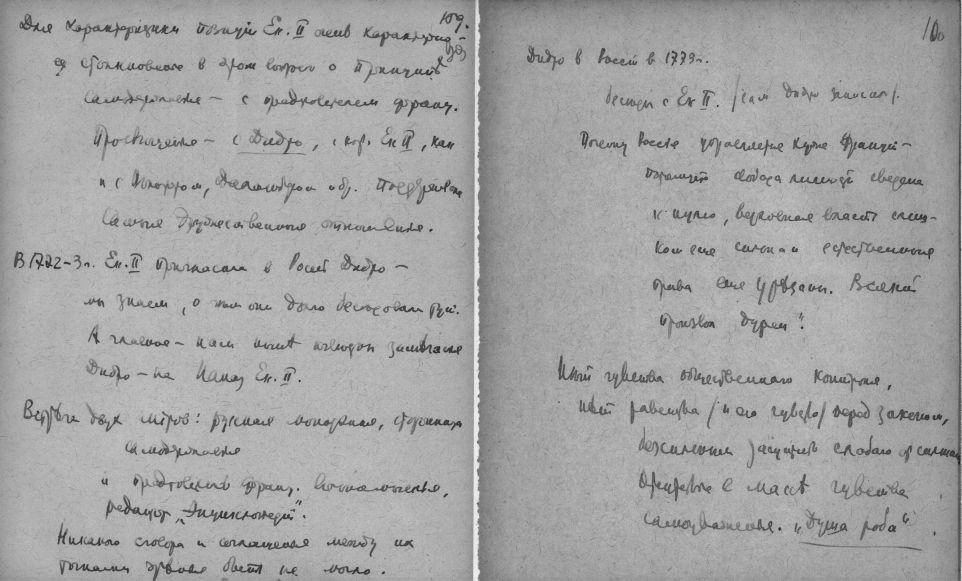 109.
Для характеристики позиций Ек. II очень характерно
ея столкновение в этом вопросе о принципѣ
самодержавия — с представителем франц.
Просвещения — с Дидро, с кот. Ек. II, как
и с Вольтером, Даламбером и др. поддерживала
самые дружественные отношения.
В 1772–3 г. Ек. II пригласила в Россию Дидро —
мы знаем, о чем они долго беседовали
А главное — нам теперь известны замечания
Дидро — на Наказ Ек. II.
Встреча двух миров: русская монархиня, сторонница
самодержавия
и представитель франц.
редактор „Энциклопедии".
Никакого сговора и соглашения между их
быть не могло.
110
Дидро в России в 1773 г.
беседы с Ек II. /сам Дидро записал/.
Почему Россия управляется хуже Франции —
свобода личности сведена
к нулю, верховная власть слиш-
ком еще сильна и естественные
права еще урезаны. Всякий
произвол дурен".
Нѣт чувства общественного контроля,
нѣт равенства / и его чувства / перед законом,
защитить слабого от сильного
в массѣ чувства
самоуважения. „Душа раба"